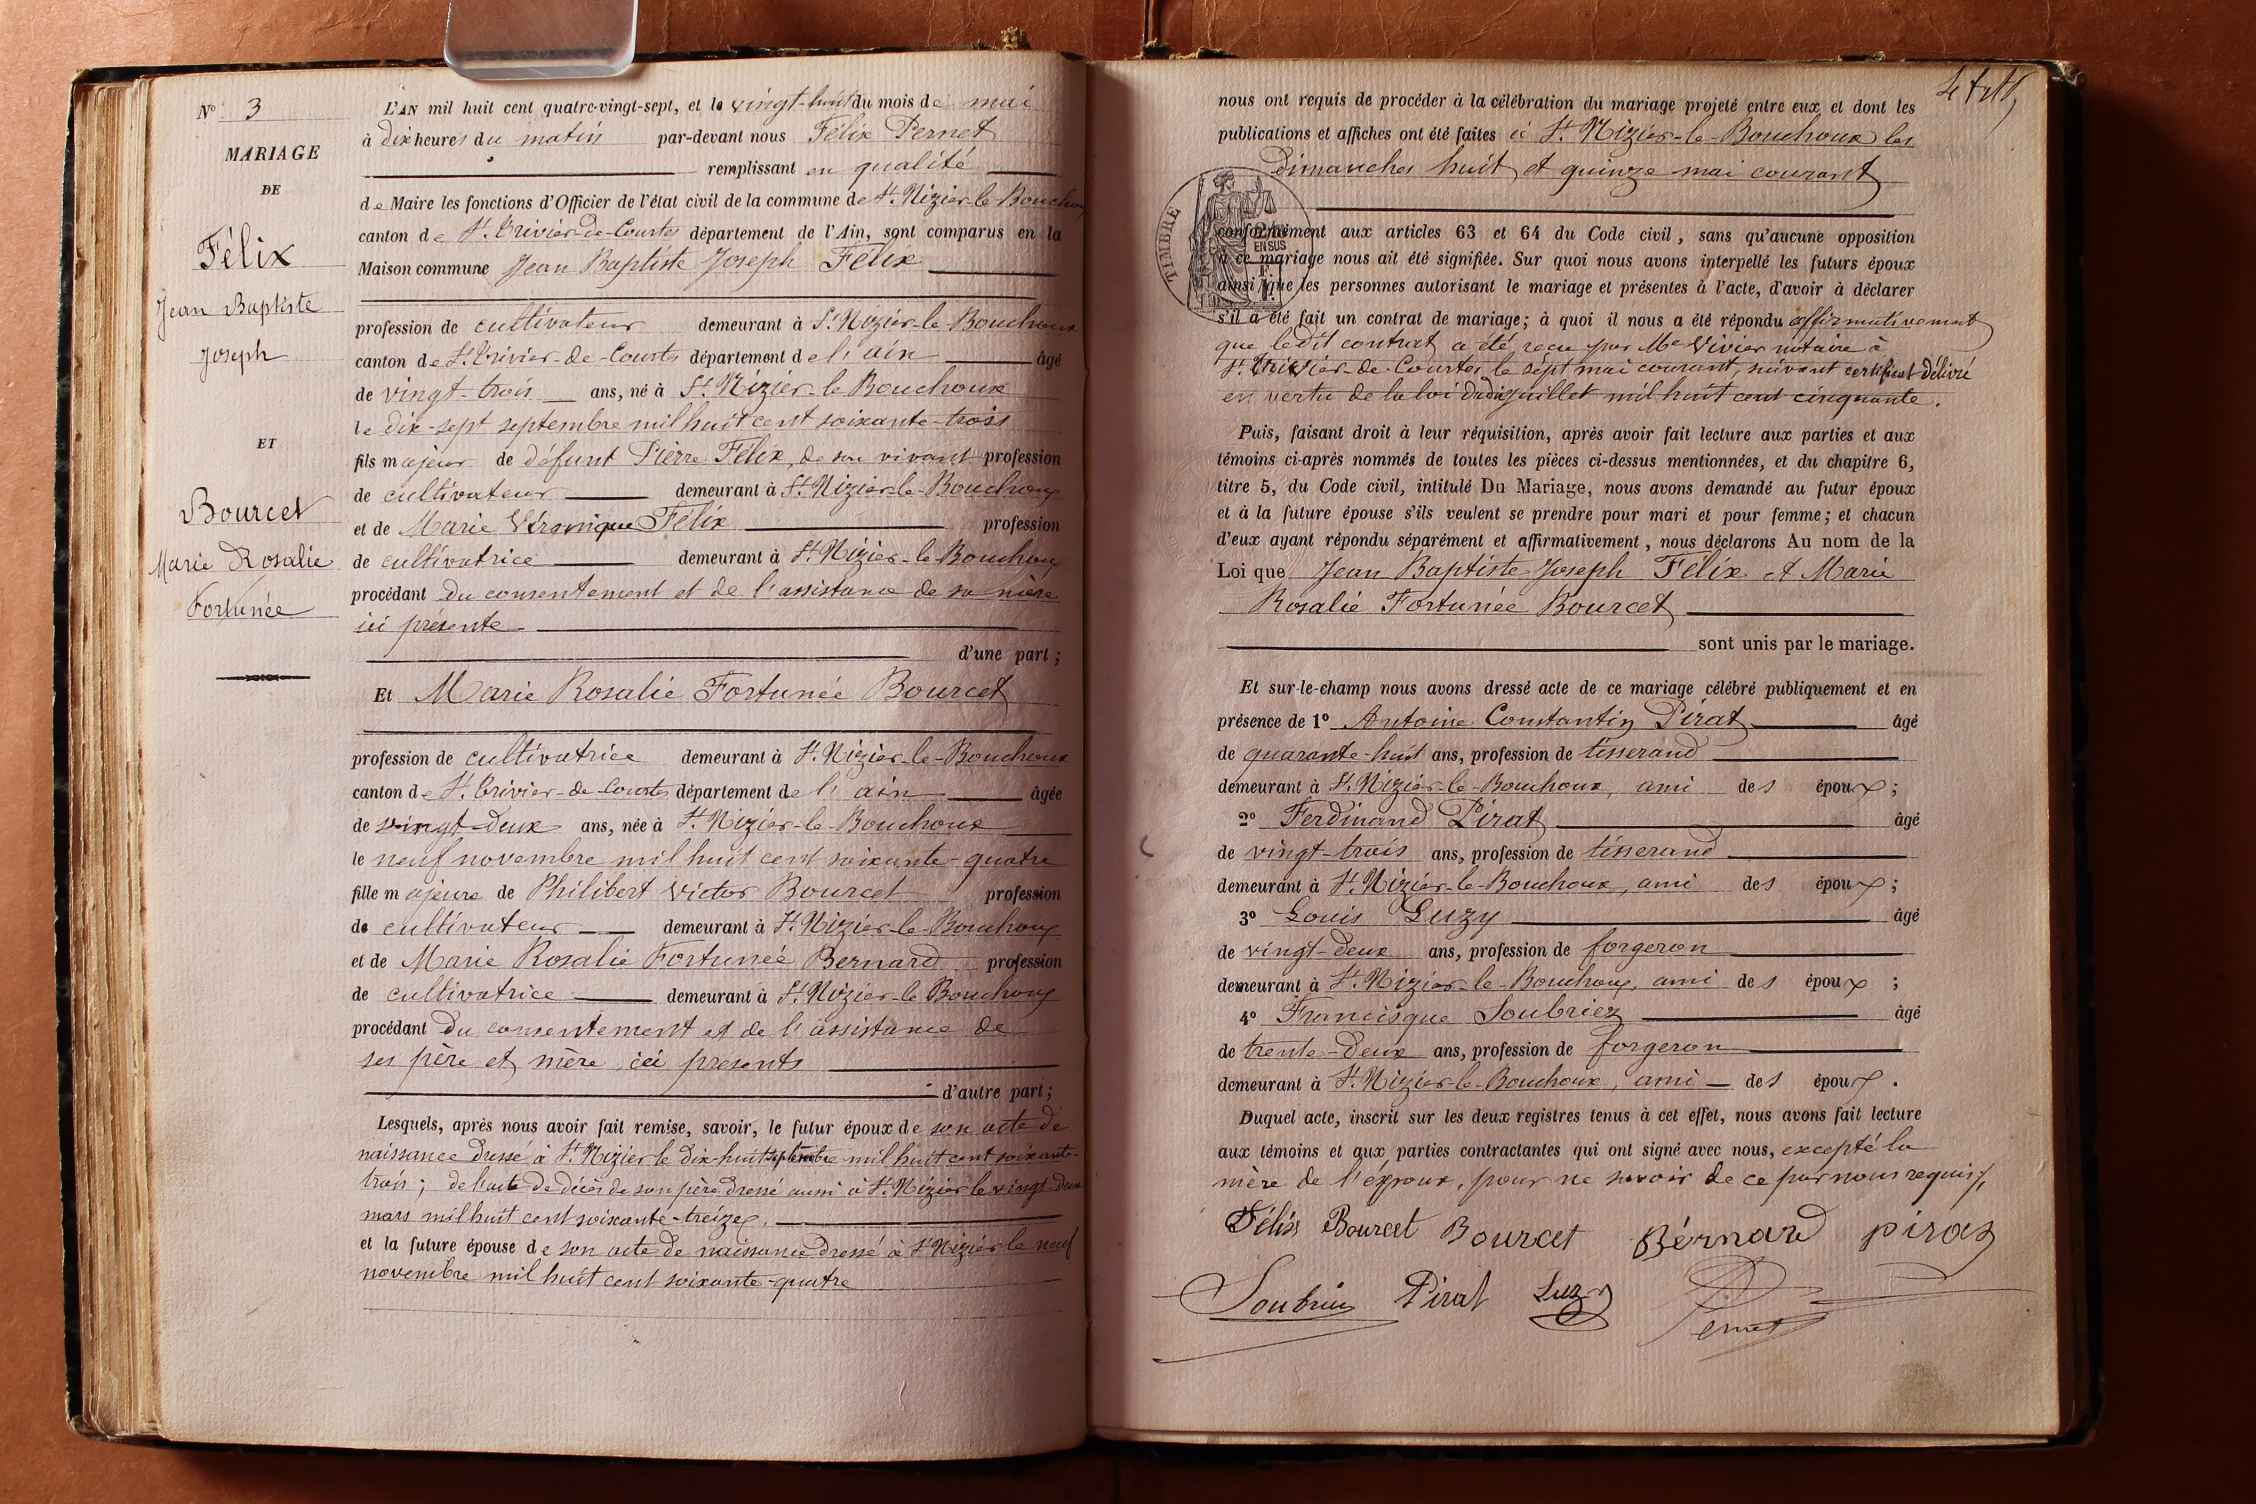 N° 3
MARIAGE
DE
Félix
Jean Baptiste
Joseph
ET
Bourcet
Marie Rosalie
Fortunée
L'AN mil huit cent quatre-vingt-sept, et le vingt-huit du mois de mai
à dix heures du matin par-devant nous Félix Pernet
remplissant en qualité
de Maire les fonctions d'Officier de l'état civil de la commune de St. Nizier-le-Bouchoux
canton de St. Trivier-de-Courtes département de l'Ain, sont comparus en la
Maison commune Jean Baptiste Joseph Félix
profession de cultivateur demeurant à St. Nizier-le-Bouchoux
canton de St. Trivier-de-Courtes département de l'ain âgé
de vingt-trois ans, né à St. Nizier-le-Bouchoux
le dix-sept septembre mil huit cent soixante-trois
fils majeur de défunt Pierre Félix, de son vivant profession
de cultivateur demeurant à St. Nizier-le-Bouchoux
et de Marie Véronique Félix profession
de cultivatrice demeurant à St. Nizier-le-Bouchoux
procédant du consentement et de l'assistance de sa mère
ici présente
d'une part ;
Et Marie Rosalie Fortunée Bourcet
profession de cultivatrice demeurant à St. Nizier-le-Bouchoux
canton de St. Trivier-de-Courtes département de l'ain âgée
de vingt-deux ans, née à St. Nizier-le-Bouchoux
le neuf novembre mil huit cent soixante-quatre
fille majeure de Philibert Victor Bourcet profession
de cultivateur demeurant à St. Nizier-le-Bouchoux
et de Marie Rosalie Fortunée Bernard profession
de cultivatrice demeurant à St. Nizier-le-Bouchoux
procédant du consentement et de l'assistance de
ses père et mère ici presents
d'autre part ;
Lesquels, après nous avoir fait remise, savoir, le futur époux de son acte de
naissance dressé à St. Nizier le dix-huit septembre mil huit cent soixante-
trois ; de l'acte de décès de son père dressé aussi à St. Nizier le vingt-deux
mars mil huit cent soixante-treize,
et la future épouse de son acte de naissance dressé à St. Nizier le neuf
novembre mil huit cent soixante-quatre
nous ont requis de procéder à la célébration du mariage projeté entre eux et dont les
publications et affiches ont été faites à St. Nizier-le-Bouchoux les
dimanches huit et quinze mai courant
TIMBRE
2/10es
EN SUS
conformément aux articles 63 et 64 du Code civil, sans qu'aucune opposition
à ce mariage nous ait été signifiée. Sur quoi nous avons interpellé les futurs époux
ainsi que les personnes autorisant le mariage et présentes à l'acte, d'avoir à déclarer
s'il a été fait un contrat de mariage ; à quoi il nous a été répondu affirmativement
que le dit contrat a été reçu par Me Vivier notaire à
St. Trivier-de-Courtes le sept mai courant, suivant certificat délivré
en vertu de la loi du dix juillet mil huit cent cinquante.
Puis, faisant droit à leur réquisition, après avoir fait lecture aux parties et aux
témoins ci-après nommés de toutes les pièces ci-dessus mentionnées, et du chapitre 6,
titre 5, du Code civil, intitulé Du Mariage, nous avons demandé au futur époux
et à la future épouse s'ils veulent se prendre pour mari et pour femme ; et chacun
d'eux ayant répondu séparément et affirmativement, nous déclarons Au nom de la
Loi que Jean Baptiste Joseph Félix et Marie
Rosalie Fortunée Bourcet
sont unis par le mariage.
Et sur-le-champ nous avons dressé acte de ce mariage célébré publiquement et en
présence de 1° Antoine Constantin Pirat âgé
de quarante-huit ans, profession de tisserand
demeurant à St. Nizier-le-Bouchoux, ami des époux ;
2° Ferdinand Pirat âgé
de vingt-trois ans, profession de tisserand
demeurant à St. Nizier-le-Bouchoux, ami des époux ;
3° Louis Luzy âgé
de vingt-deux ans, profession de forgeron
demeurant à St. Nizier-le-Bouchoux, ami des époux ;
4° Francisque Soubriez âgé
de trente-deux ans, profession de forgeron
demeurant à St. Nizier-le-Bouchoux, ami des époux.
Duquel acte, inscrit sur les deux registres tenus à cet effet, nous avons fait lecture
aux témoins et aux parties contractantes qui ont signé avec nous, excepté la
mère de l'époux, pour ne savoir de ce par nous requis,
Félix Bourcet Bourcet Bérnard piraz
Soubriez Pirat Luzy
Pernet